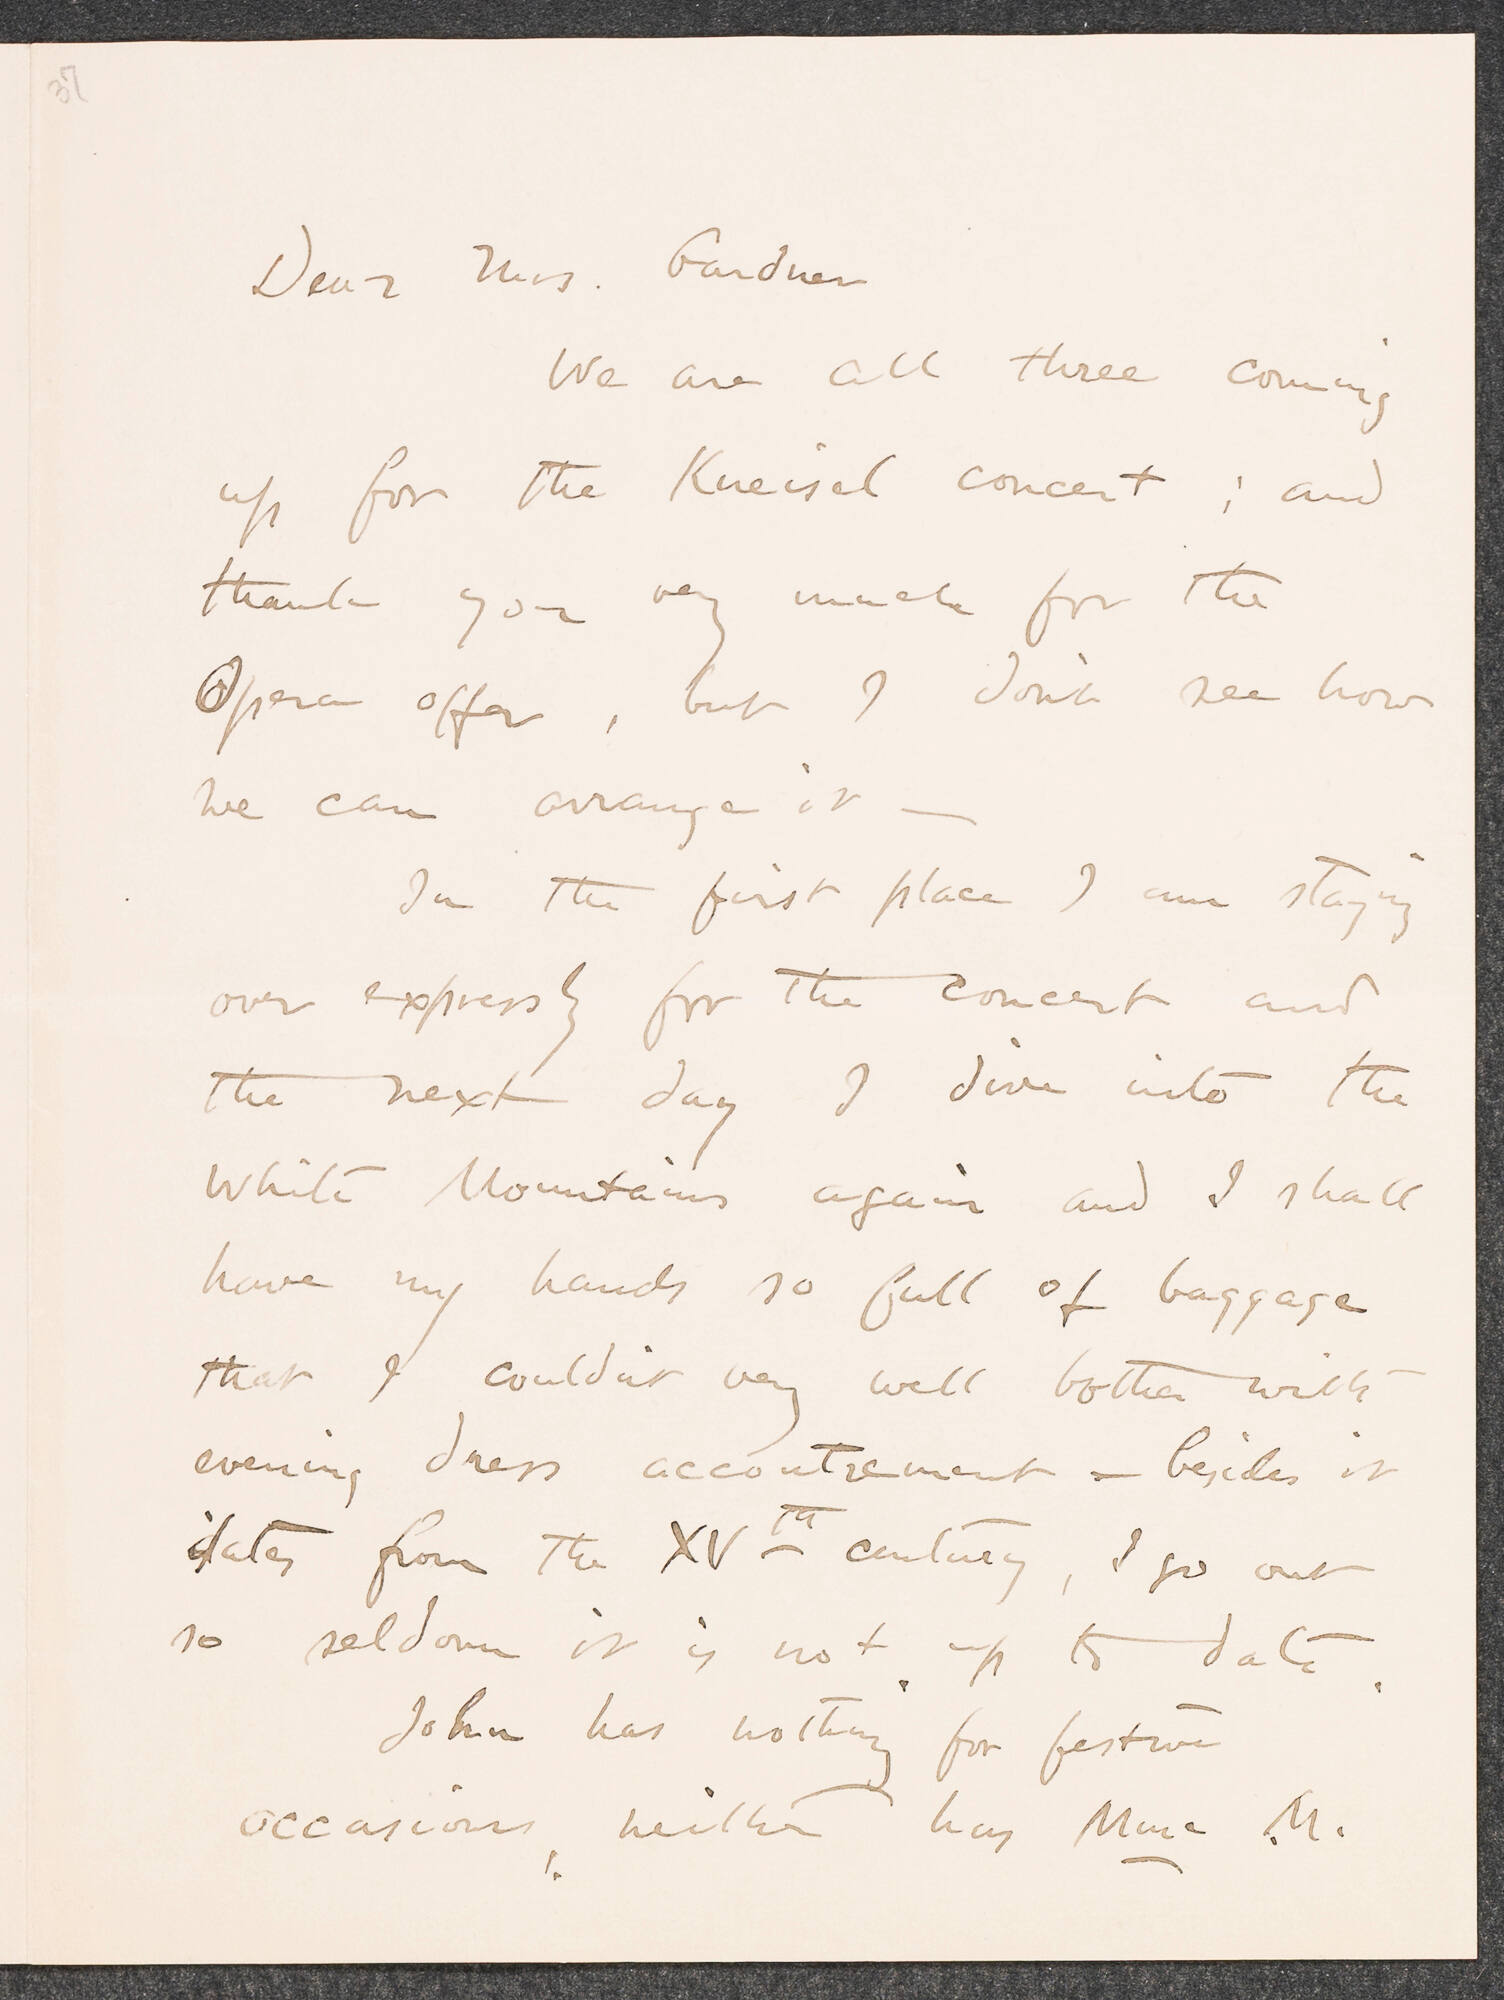 37
Dear Mrs. Gardner
We are all three coming
up for the Kneisel concert ; and
thank you very much for the
Opera offer, but I don't see how
we can arrange it —
In the first place I am staying
over expressly for the concert and
the next day I dive into the
White Mountains again and I shall
have my hands so full of baggage
that I couldn't very well bother with
evening dress accoutrement — besides it
dates from the XVth century, I go out
so seldom it is not up to date.
John has nothing for festive
occasions, neither has Mme M.